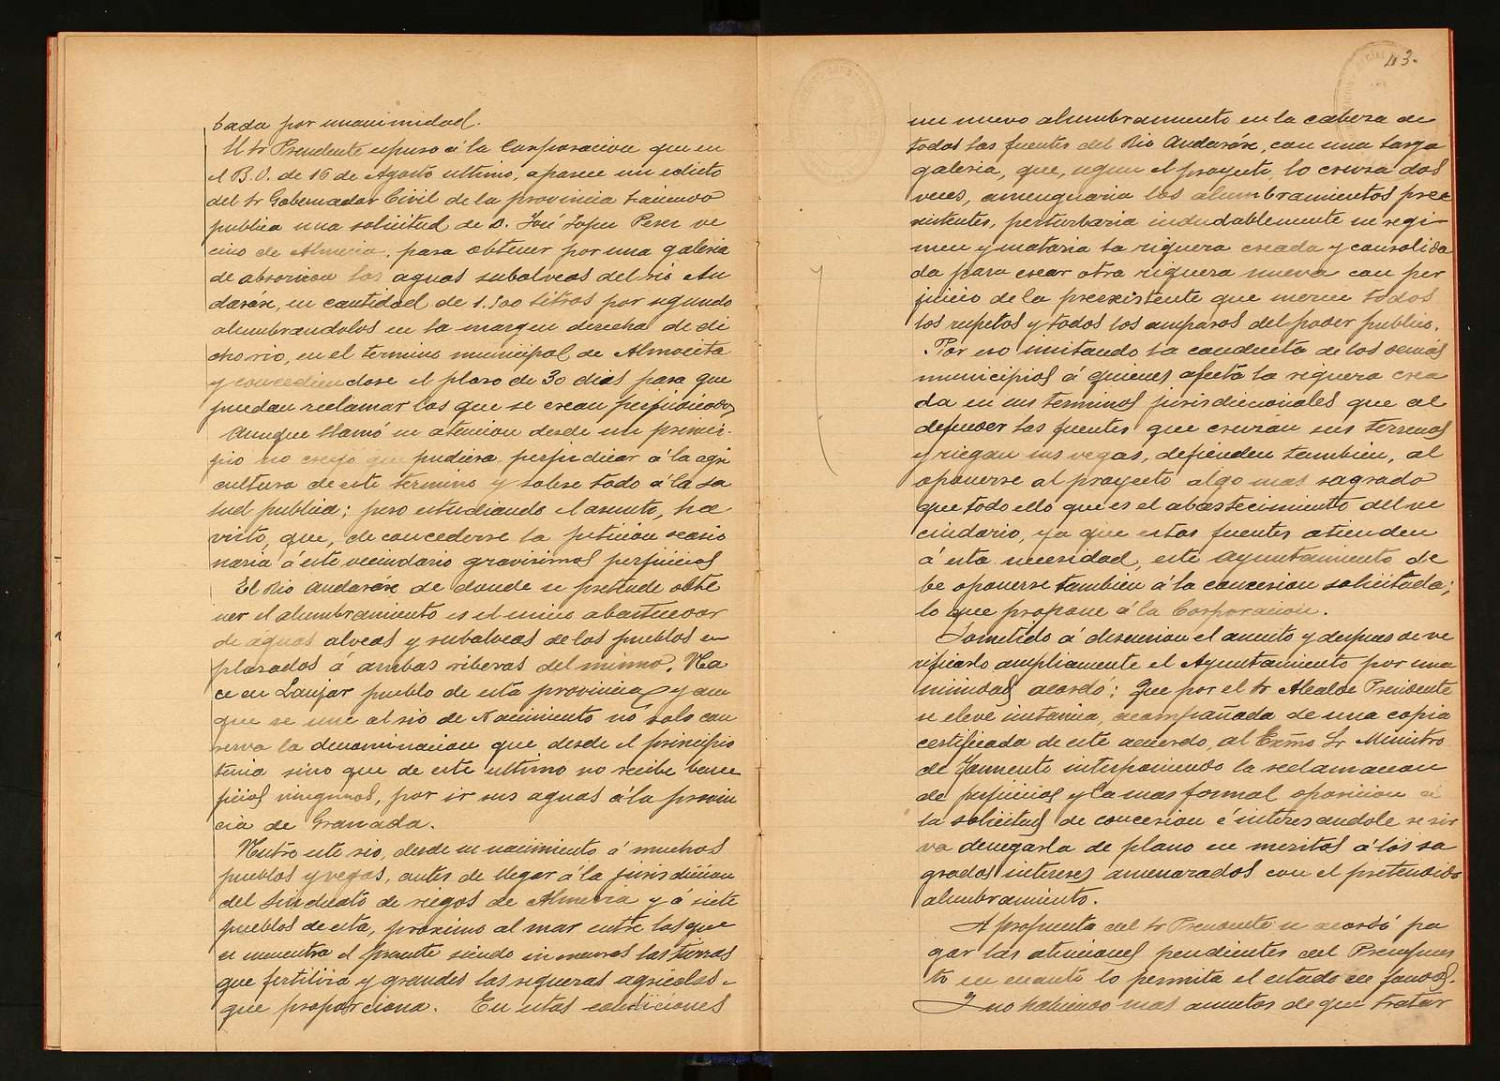 bada por unanimidad.
El Sr Presidente espuso á la Corporacion que en
el B.O. de 16 de Agosto ultimo, aparece un edicto
del Sr Gobernador Civil de la provincia haciendo
publica una solicitud de D. José Lopez Perez ve
cino de Almeria, para obtener por una galeria
de absorcion las aguas subalveas del rio An
darax, en cantidad de 1.500 litros por segundo
alumbrandolos en la margen derecha de di
cho rio, en el termino municipal de Almocita
y concediendose el plazo de 30 dias para que
puedan reclamar los que se crean perjudicados
Aunque llamó su atencion desde un princi-
pio no creyó que pudiera perjudicar á la agri
cultura de este termino y sobre todo á la sa
lud publica; pero estudiando el asunto, ha
visto, que, de concederse la peticion ocasio
naria á este vecindario gravisimos perjuicios
El Rio Andarax de donde se pretende obte
ner el alumbramiento es el unico abastecedor
de aguas alveas y subalveas de los pueblos em
plazados á ambas riberas del mismo. Na
ce en Laujar pueblo de esta provincia y aun
que se une al rio de Nacimiento no solo con
serva la denominacion que desde el principio
tenia sino que de este ultimo no recibe bene
ficios ningunos, por ir sus aguas á la provin
cia de Granada.
Nutre este rio, desde su nacimiento á muchos
pueblos y vegas, antes de llegar á la jurisdiccion
del Sindicato de riegos de Almeria y á siete
pueblos de esta, proximo al mar entre los que
se encuentra el presente siendo inmensas las tierras
que fertiliza y grandes las riquezas agricolas
que proporciona. En estas condiciones
43.
un nuevo alumbramiento en la cabeza de
todas las fuentes del Rio Andarax, con una larga
galeria, que, segun el proyecto, lo cruza dos
veces, amenguaria los alumbramientos pree
xistentes, perturbaria indudablemente su regi-
men y mataria la riqueza creada y consolida
da para crear otra riqueza nueva con per
juicio de la preexistente que merece todos
los respetos y todos los amparos del poder publico.
Por eso imitando la conducta de los demás
municipios á quienes afecta la riqueza crea
da en sus terminos jurisdiccionales que al
defender las fuentes que cruzan sus terrenos
y riegan sus vegas, defienden tambien, al
oponerse al proyecto algo mas sagrado
que todo ello que es el abastecimiento del ve
cindario, ya que estas fuentes atienden
á esta necesidad, este Ayuntamiento de
be oponerse tambien á la concesion solicitada;
lo que propone á la Corporacion.
Sometido á discusion el asunto y despues de ve
rificarlo ampliamente el Ayuntamiento por una
nimidad acordó: Que por el Sr Alcalde Presidente
se eleve instancia, acompañada de una copia
certificada de este acuerdo, al Exmo Sr Ministro
de Fomento interponiendo la reclamacion
de perjuicios y la mas formal oposicion á
la solicitud de concesion é interesandole se sir
va denegarla de plano en meritos á los sa
grados intereses amenazados con el pretendido
alumbramiento.
A propuesta del Sr Presidente se acordó pa
gar las atenciones pendientes del Presupues
to en cuanto lo permita el estado de fondos.
Y no habiendo mas asuntos de que tratar